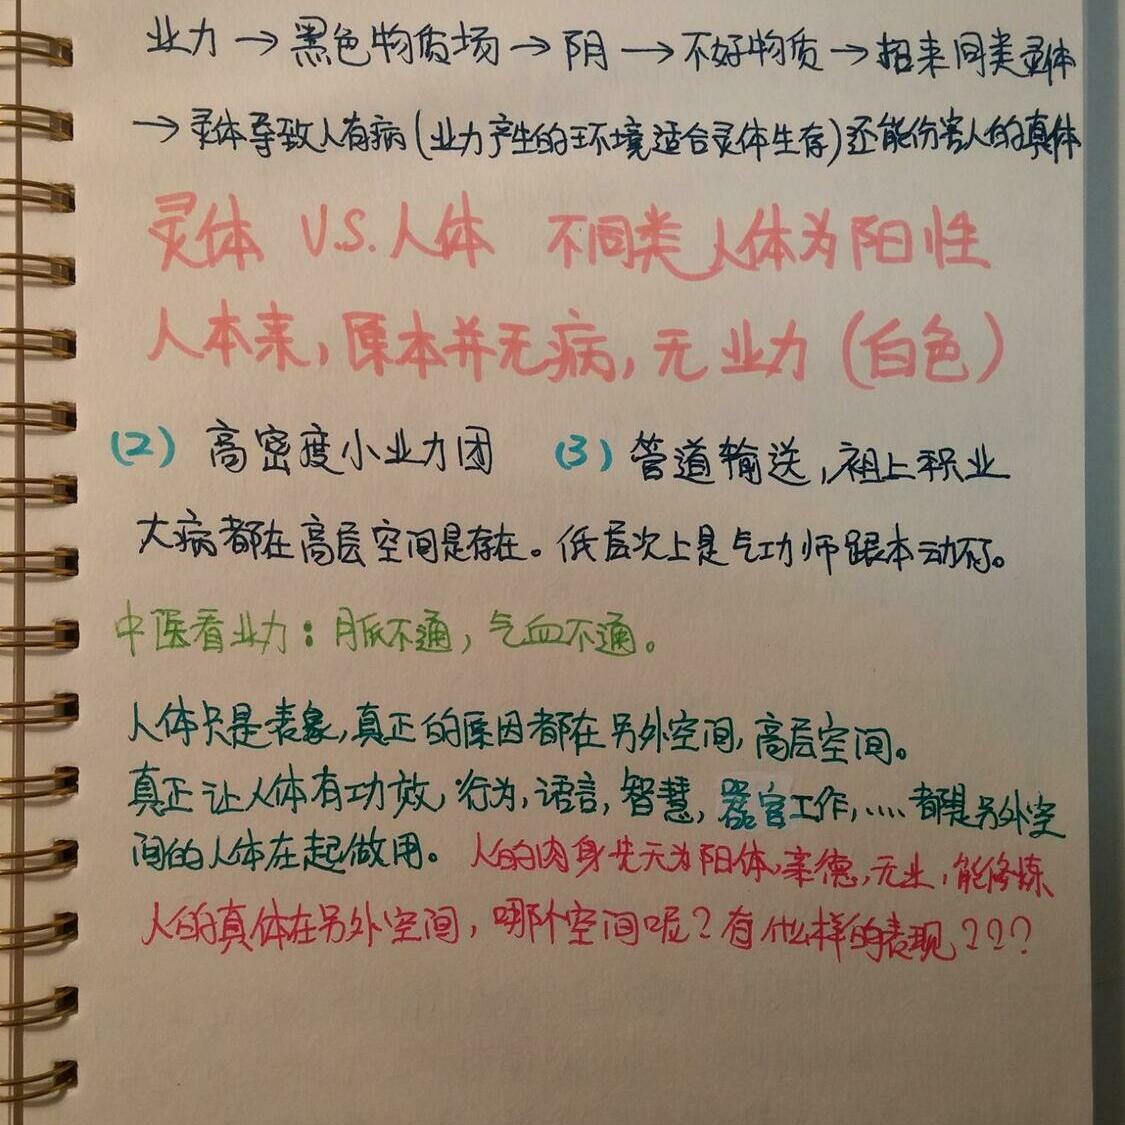 业力→黑色物质场→阴→不好物质→招来同类灵体
→灵体导致人有病(业力产生的环境适合灵体生存)还能伤害人的真体
灵体 V.S.人体 不同类 人体为阳性
人本来,原本并无病,无业力(白色)
(2) 高密度小业力团 (3) 管道输送,祖上积业
大病都在高层空间是存在。低层次上是气功师跟本动不了。
中医看业力:月脉不通,气血不通。
人体只是表象,真正的原因都在另外空间,高层空间。
真正让人体有功效,行为,语言,智慧,器官工作,....都是另外空
间的人体在起做用。人的肉身先天为阳体,亲德,无业,能修炼
人的真体在另外空间,哪个空间呢?有什么样的表现???